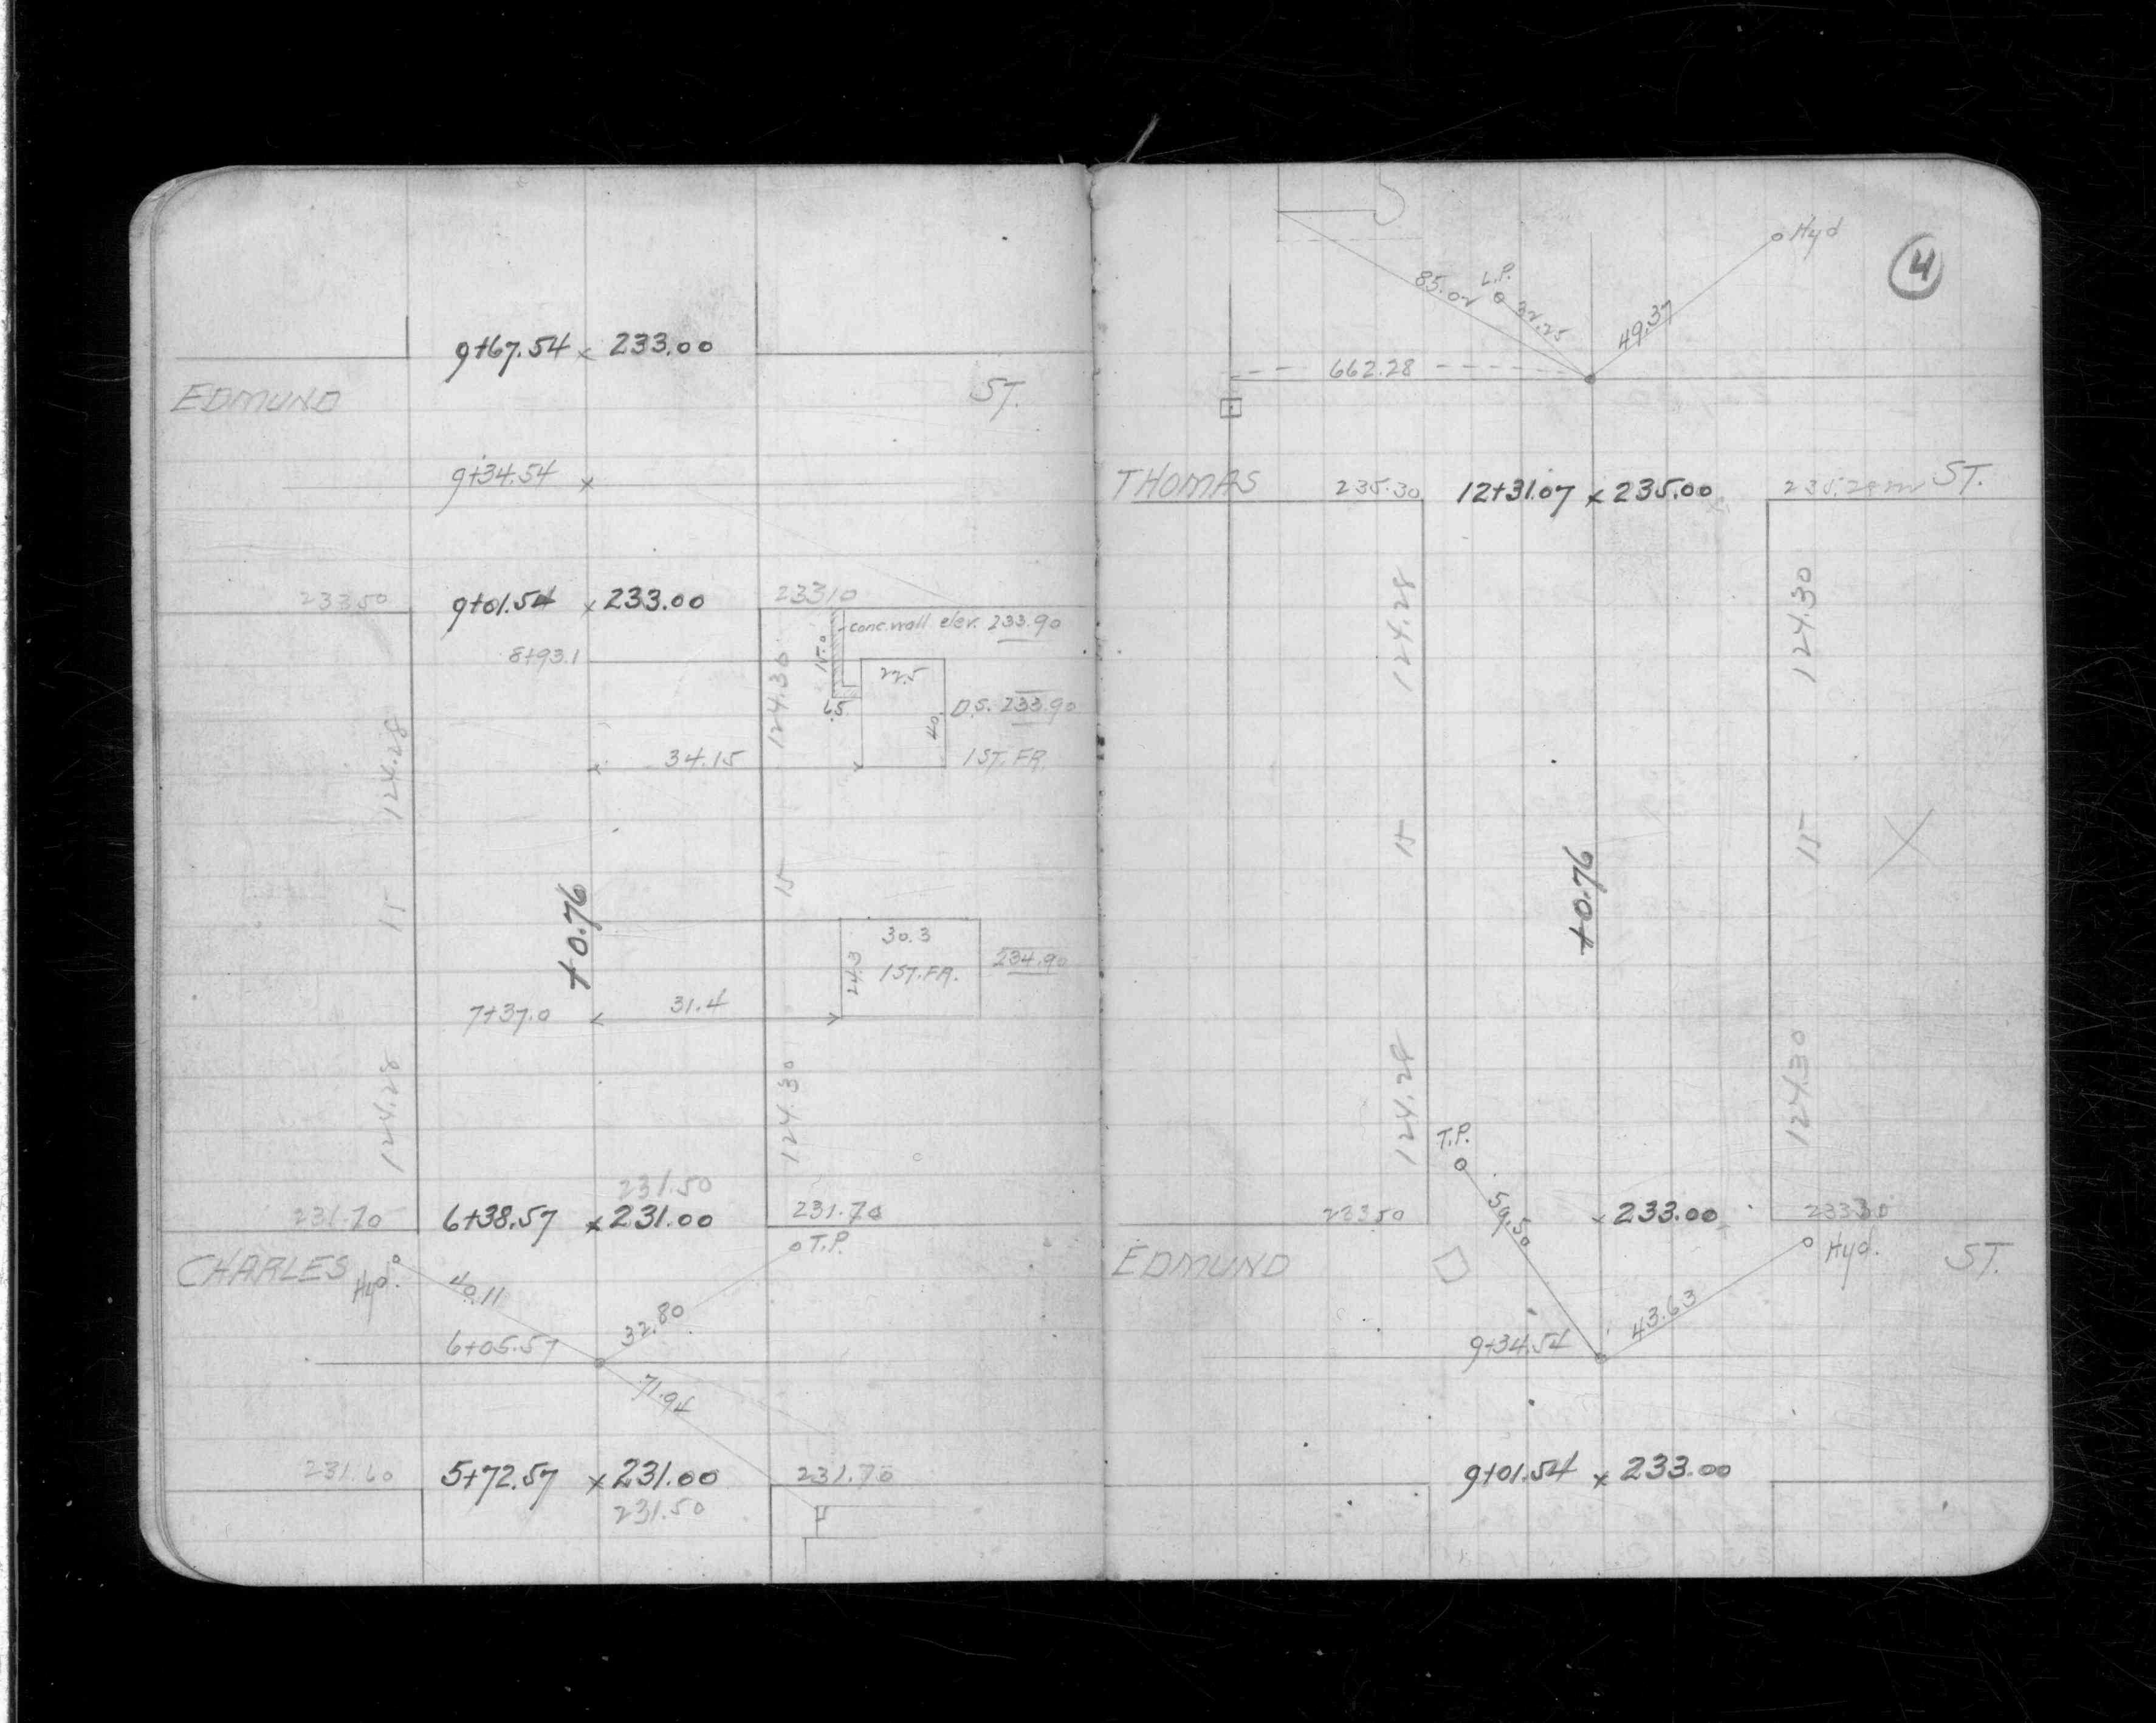 9+67.54 x 233.00
EDMUND ST.
9+34.54 x
233.50 9+01.54 x 233.00 233.10
conc. wall elev. 233.90
8+93.1
15.0
22.5
124.30
.65
40.
D.S. 233.90
124.28
34.15
1 ST. FR.
15
15
+0.76
30.3
24.3
1 ST. FR.
234.90
7+37.0
31.4
124.28
124.30
231.50
231.70 6+38.57 x 231.00 231.70
T.P.
CHARLES
Hyd.
40.11
32.80
6+05.57
71.94
231.60 5+72.57 x 231.00 231.70
231.50
4
Hyd
L.P.
85.02
32.25
49.37
662.28
THOMAS 235.30 12+31.07 x 235.00 ST.
124.28
124.30
15
15
+0.76
124.28
124.30
T.P.
59.50
233.50 x 233.00 233.30
Hyd.
EDMUND ST.
43.63
9+34.54
9+01.54 x 233.00